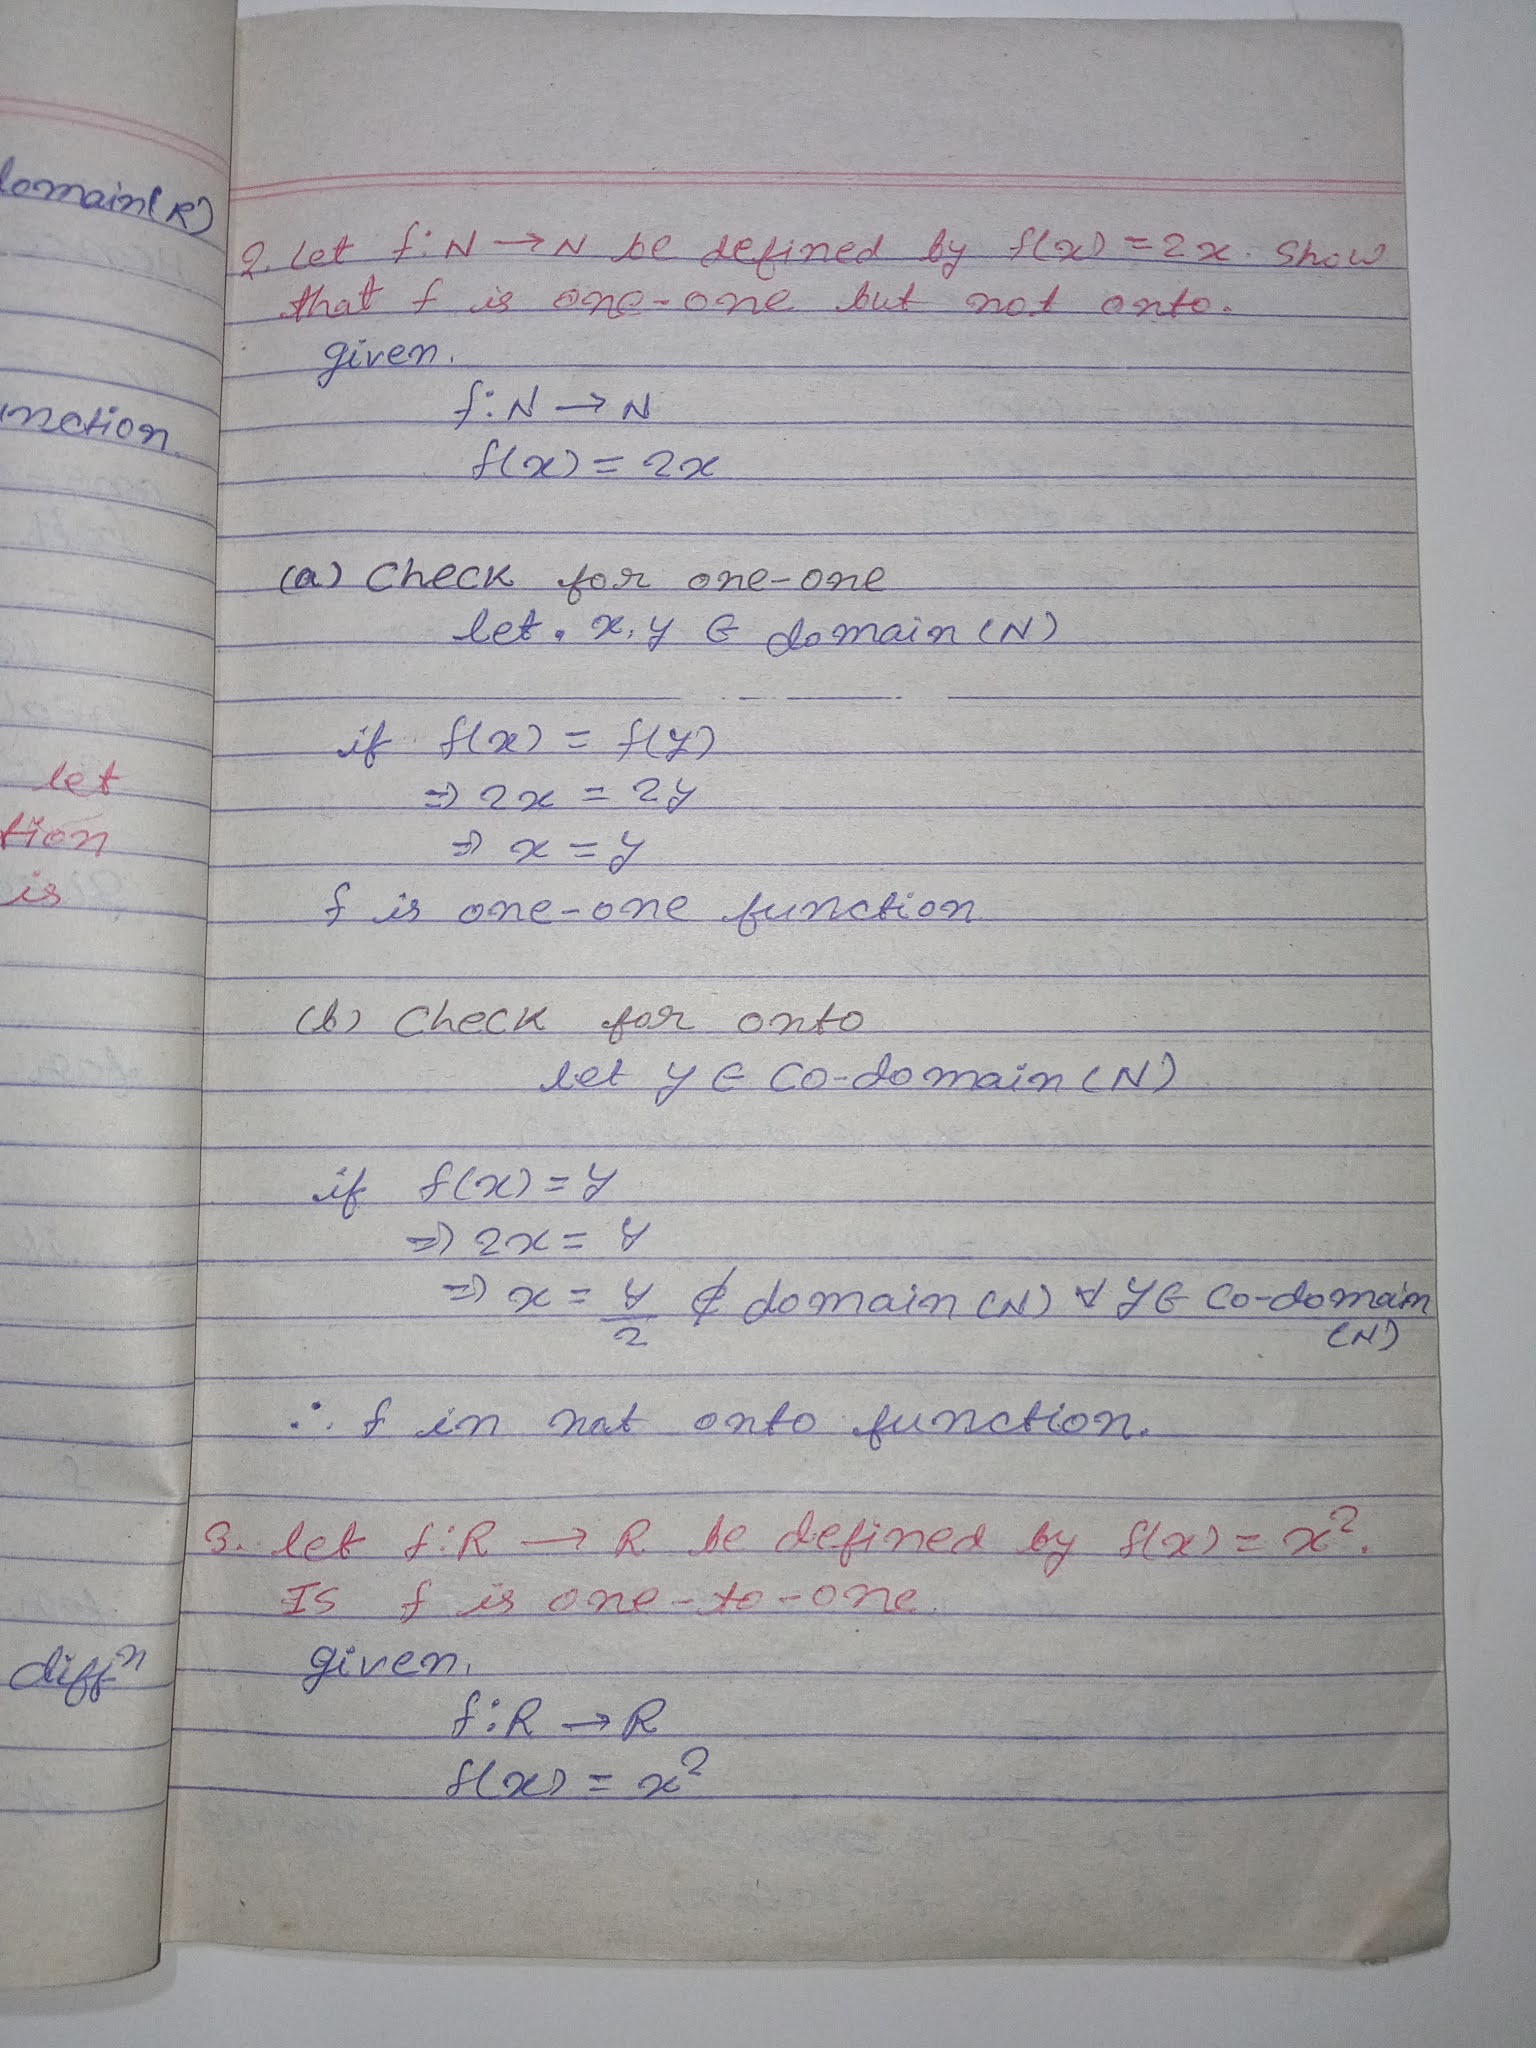 domain(R)
unction.
let
tion
is
diffⁿ
2. Let f:N → N be defined by f(x) = 2x. Show
that f is one-one but not onto.
given.
f:N → N
f(x) = 2x
(a) Check for one-one
let. x, y ∈ domain (N)
if f(x) = f(y)
⇒ 2x = 2y
⇒ x = y
f is one-one function
(b) Check for onto
let y ∈ Co-domain (N)
if f(x) = y
⇒ 2x = y
⇒ x = y/2 ∉ domain (N) ∀ y ∈ Co-domain
(N)
∴ f in not onto function.
3. let f:R → R be defined by f(x) = x².
Is f is one-to-one.
given.
f:R → R
f(x) = x²